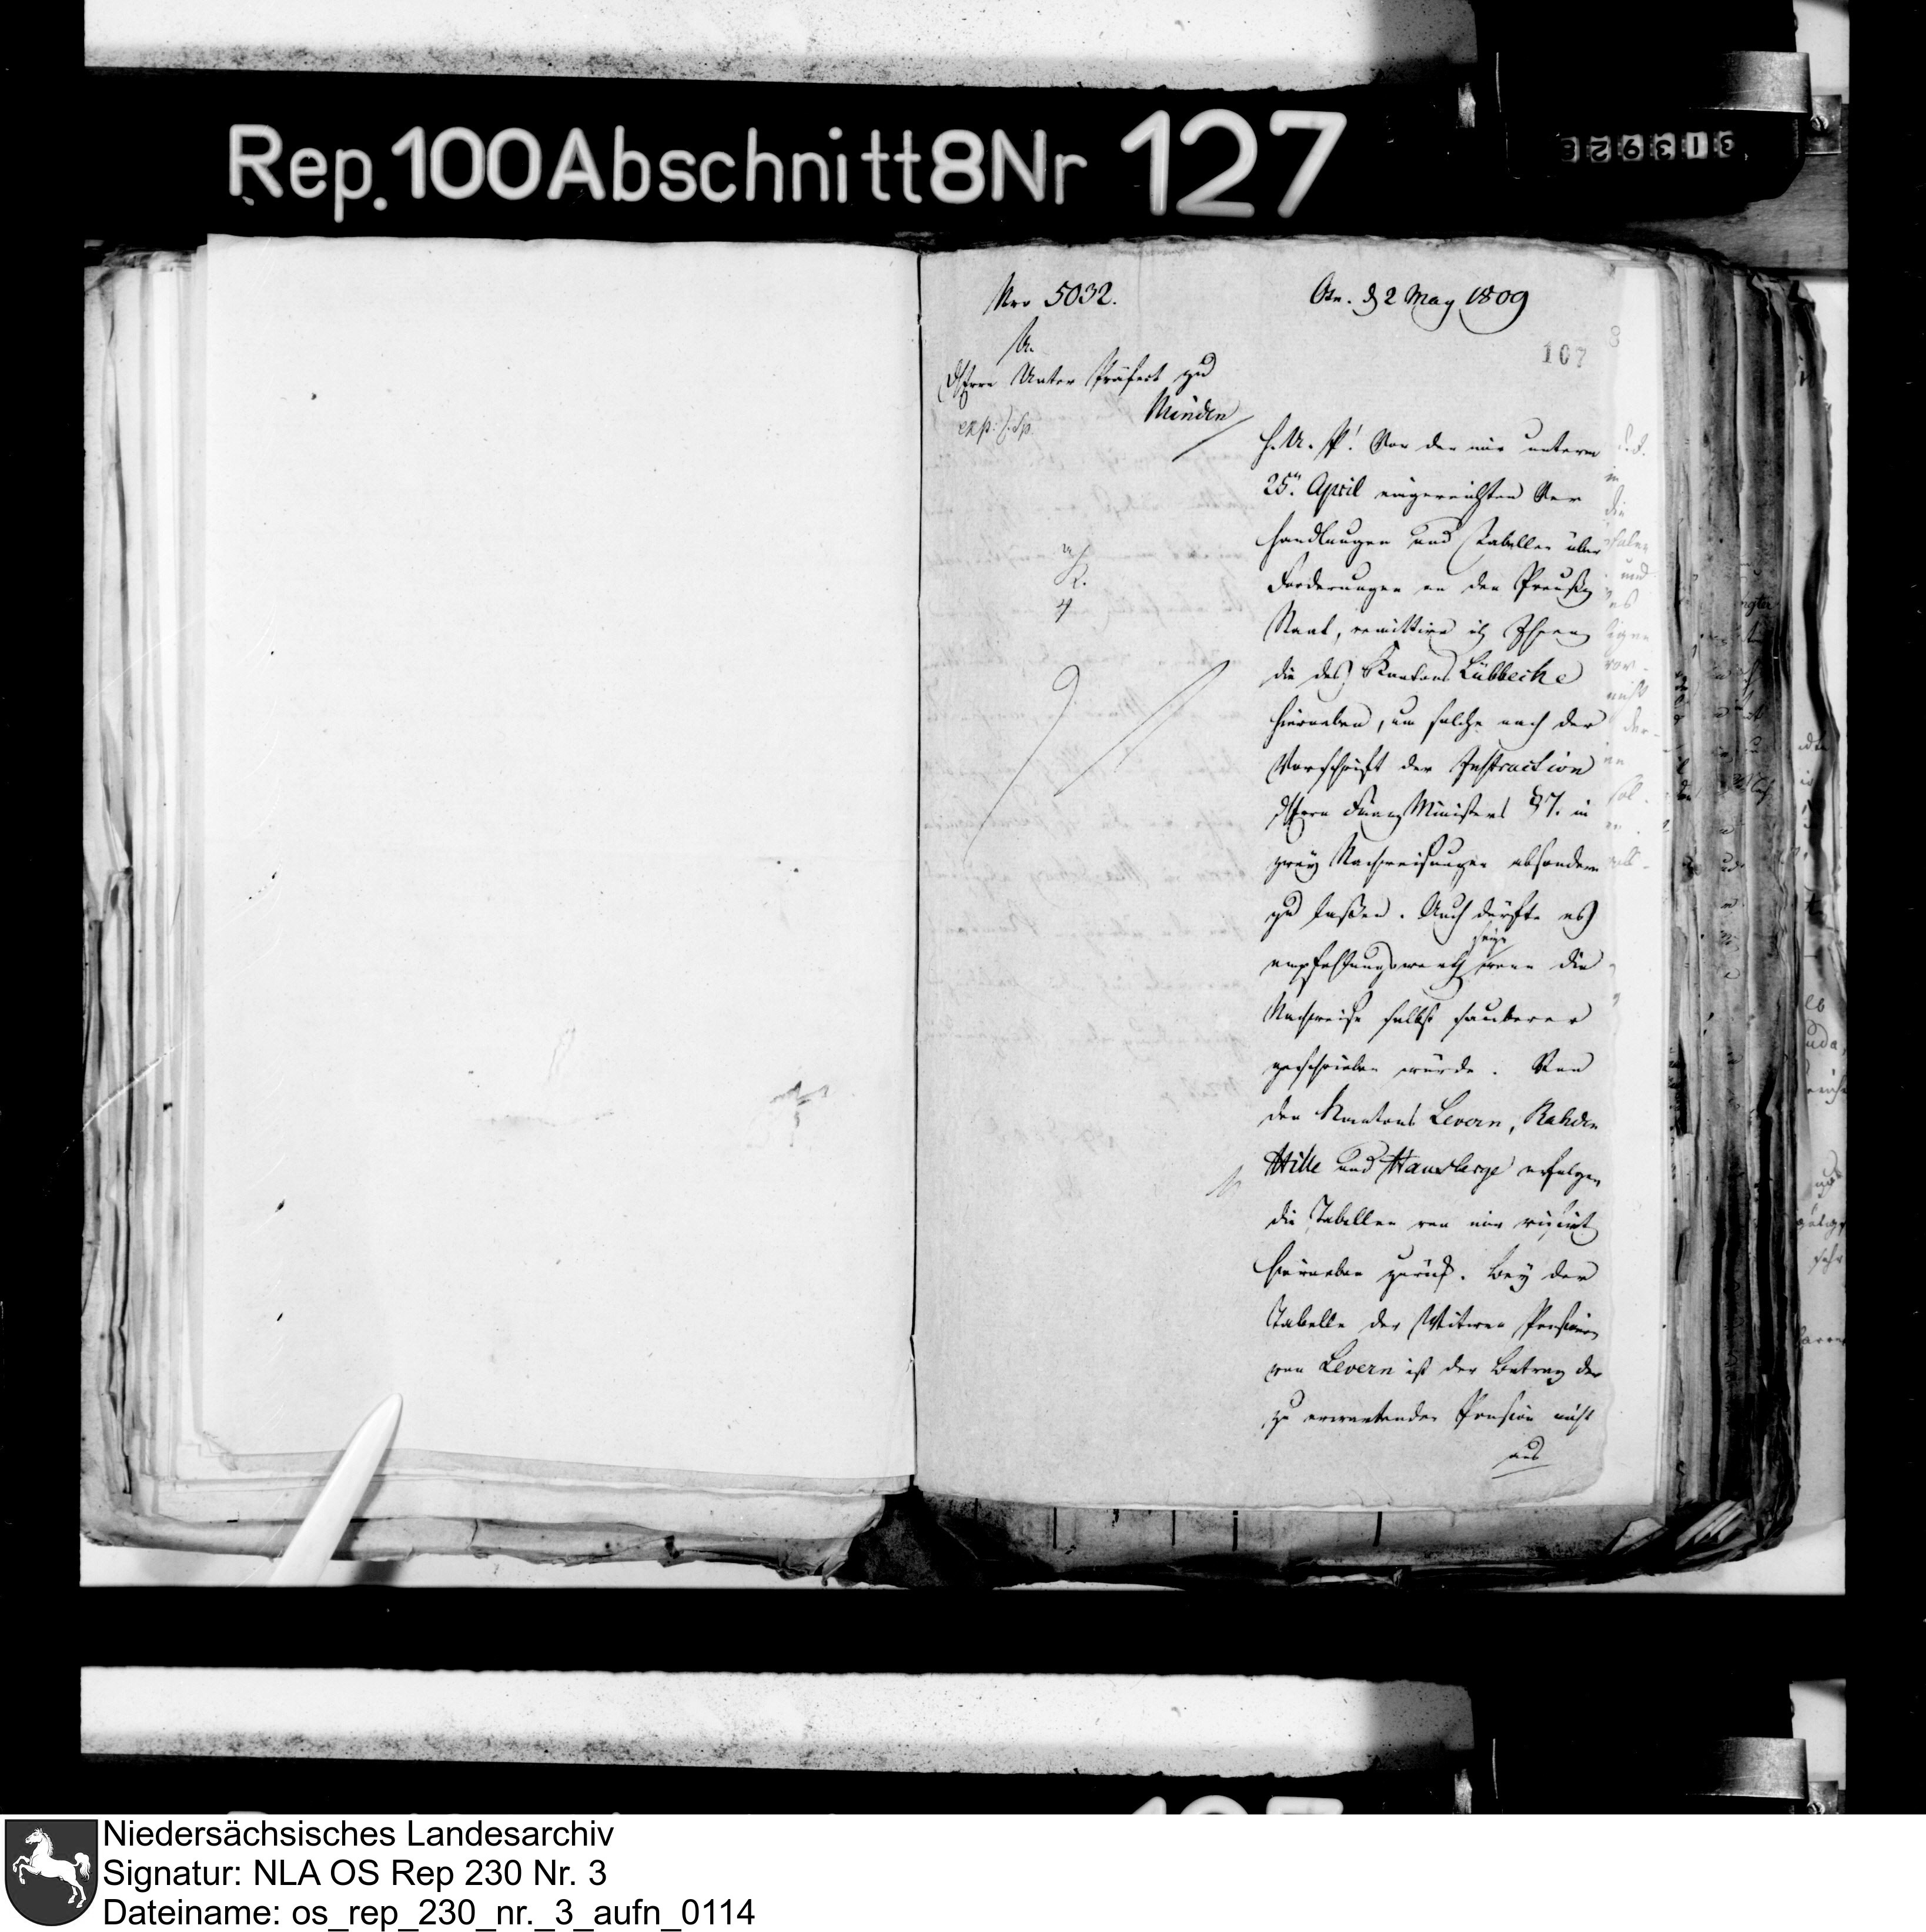 Rep. 100 Abschnitt 8 Nr 127
313923
Nro 5032.
Osn. d 2 May 1809
107
An
d Herrn Unter Präfect zu
Minden
exp:
H. U. Pf! Von den mir unterm
25n. April eingereichten Ver
handlungen und Tabellen über
Forderungen an den Preußischen
Staat, remittire ich Ihnen
die des Kantons Lübbecke
hierneben, um solche nach der
Vorschrift der Instruction
d Herrn Finanz Ministers §7. in
zwey Nachweisungen absondern
zu laßen. Auch dürfte es
seyn
empfehlungswerth wenn die
Nachweise selbst sauberer
geschrieben würde. Von
den Kantons Levern, Rahden
Hille und Hausberge erfolgen
die Tabellen von mir
hierneben zurück. Bey der
Tabelle der Witwen Pension
von Levern ist der Betrag der
zu erwartenden Pension nicht
aus
Niedersächsisches Landesarchiv
Signatur: NLA OS Rep 230 Nr. 3
Dateiname: os_rep_230_nr._3_aufn_0114